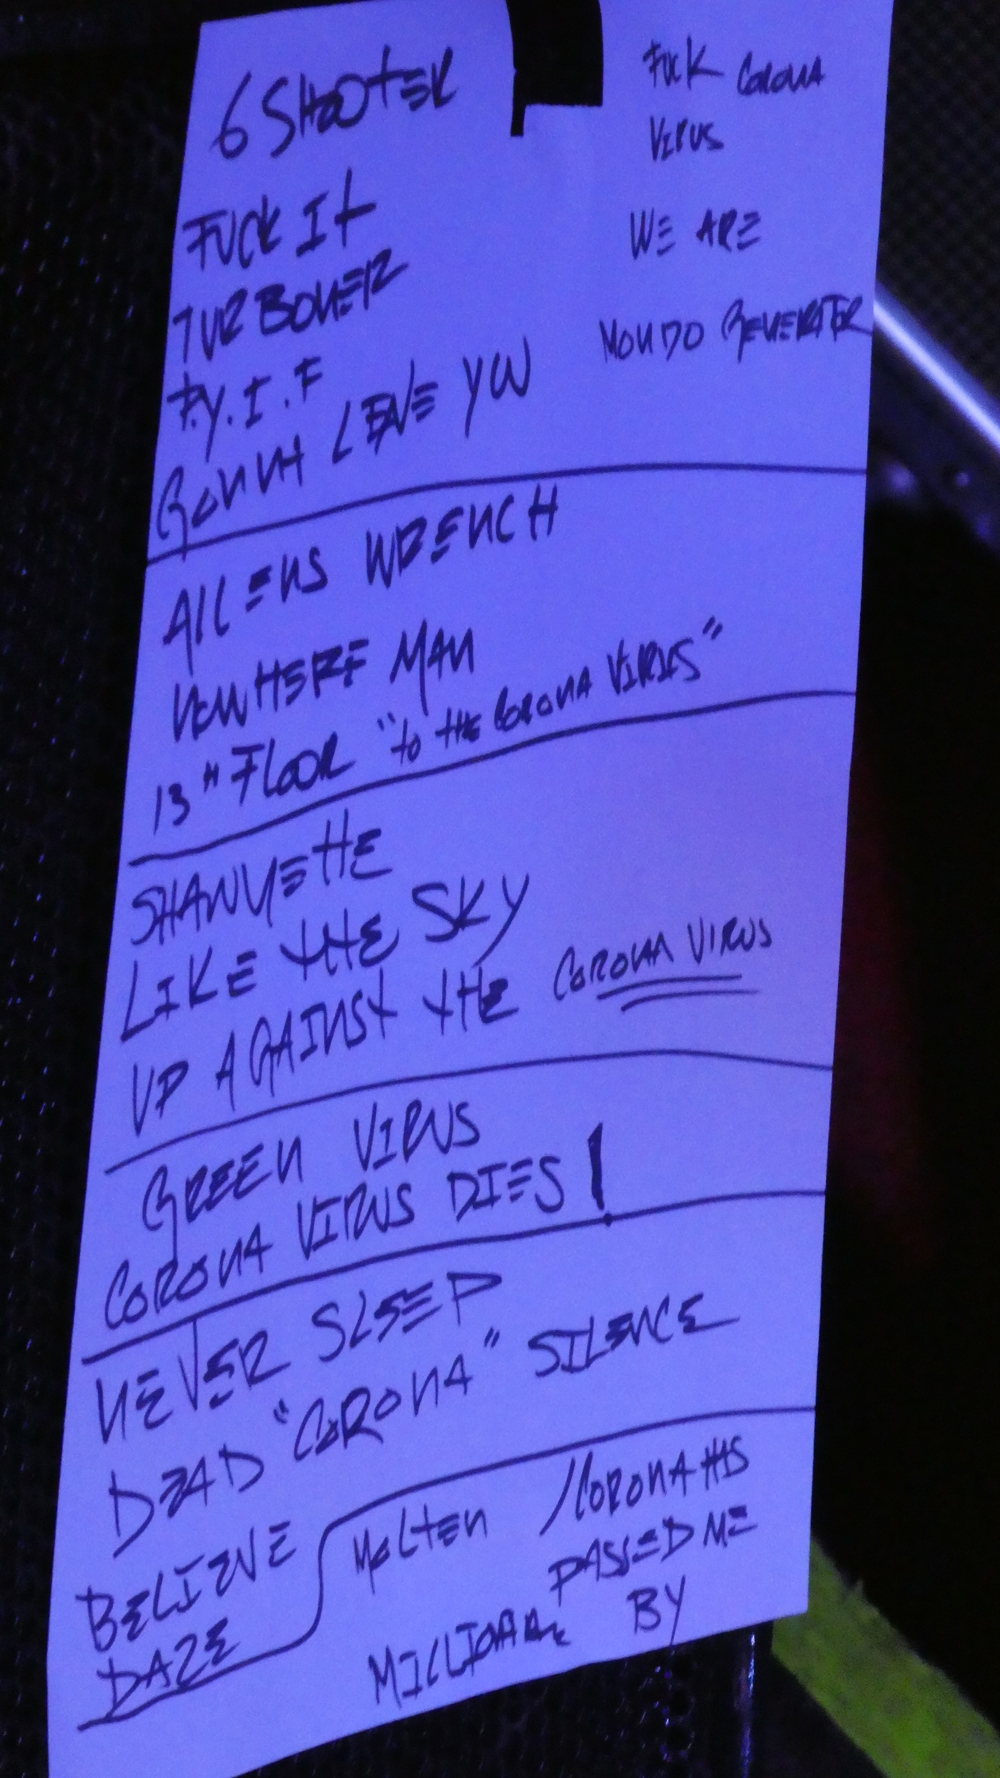 6 SHOOTER
FUCK IT
TURBONER
F.Y.I.F
GONNA LEAVE YOU
FUCK CORONA
VIRUS
WE ARE
MONDO GENERATOR
ALLENS WRENCH
NOWHERE MAN
13 "FLOOR "to tHE CORONA VIRUS"
SHAWNETTE
LIKE tHE SKY
UP AGAINST tHE CORONA VIRUS
GREEN VIRUS
CORONA VIRUS DIES!
NEVER SLEEP
DEAD "CORONA" SILENCE
BELIEVE
DAZE
MOLtEN / CORONA HAS
PASSED ME
BY
MILLIONAIRE